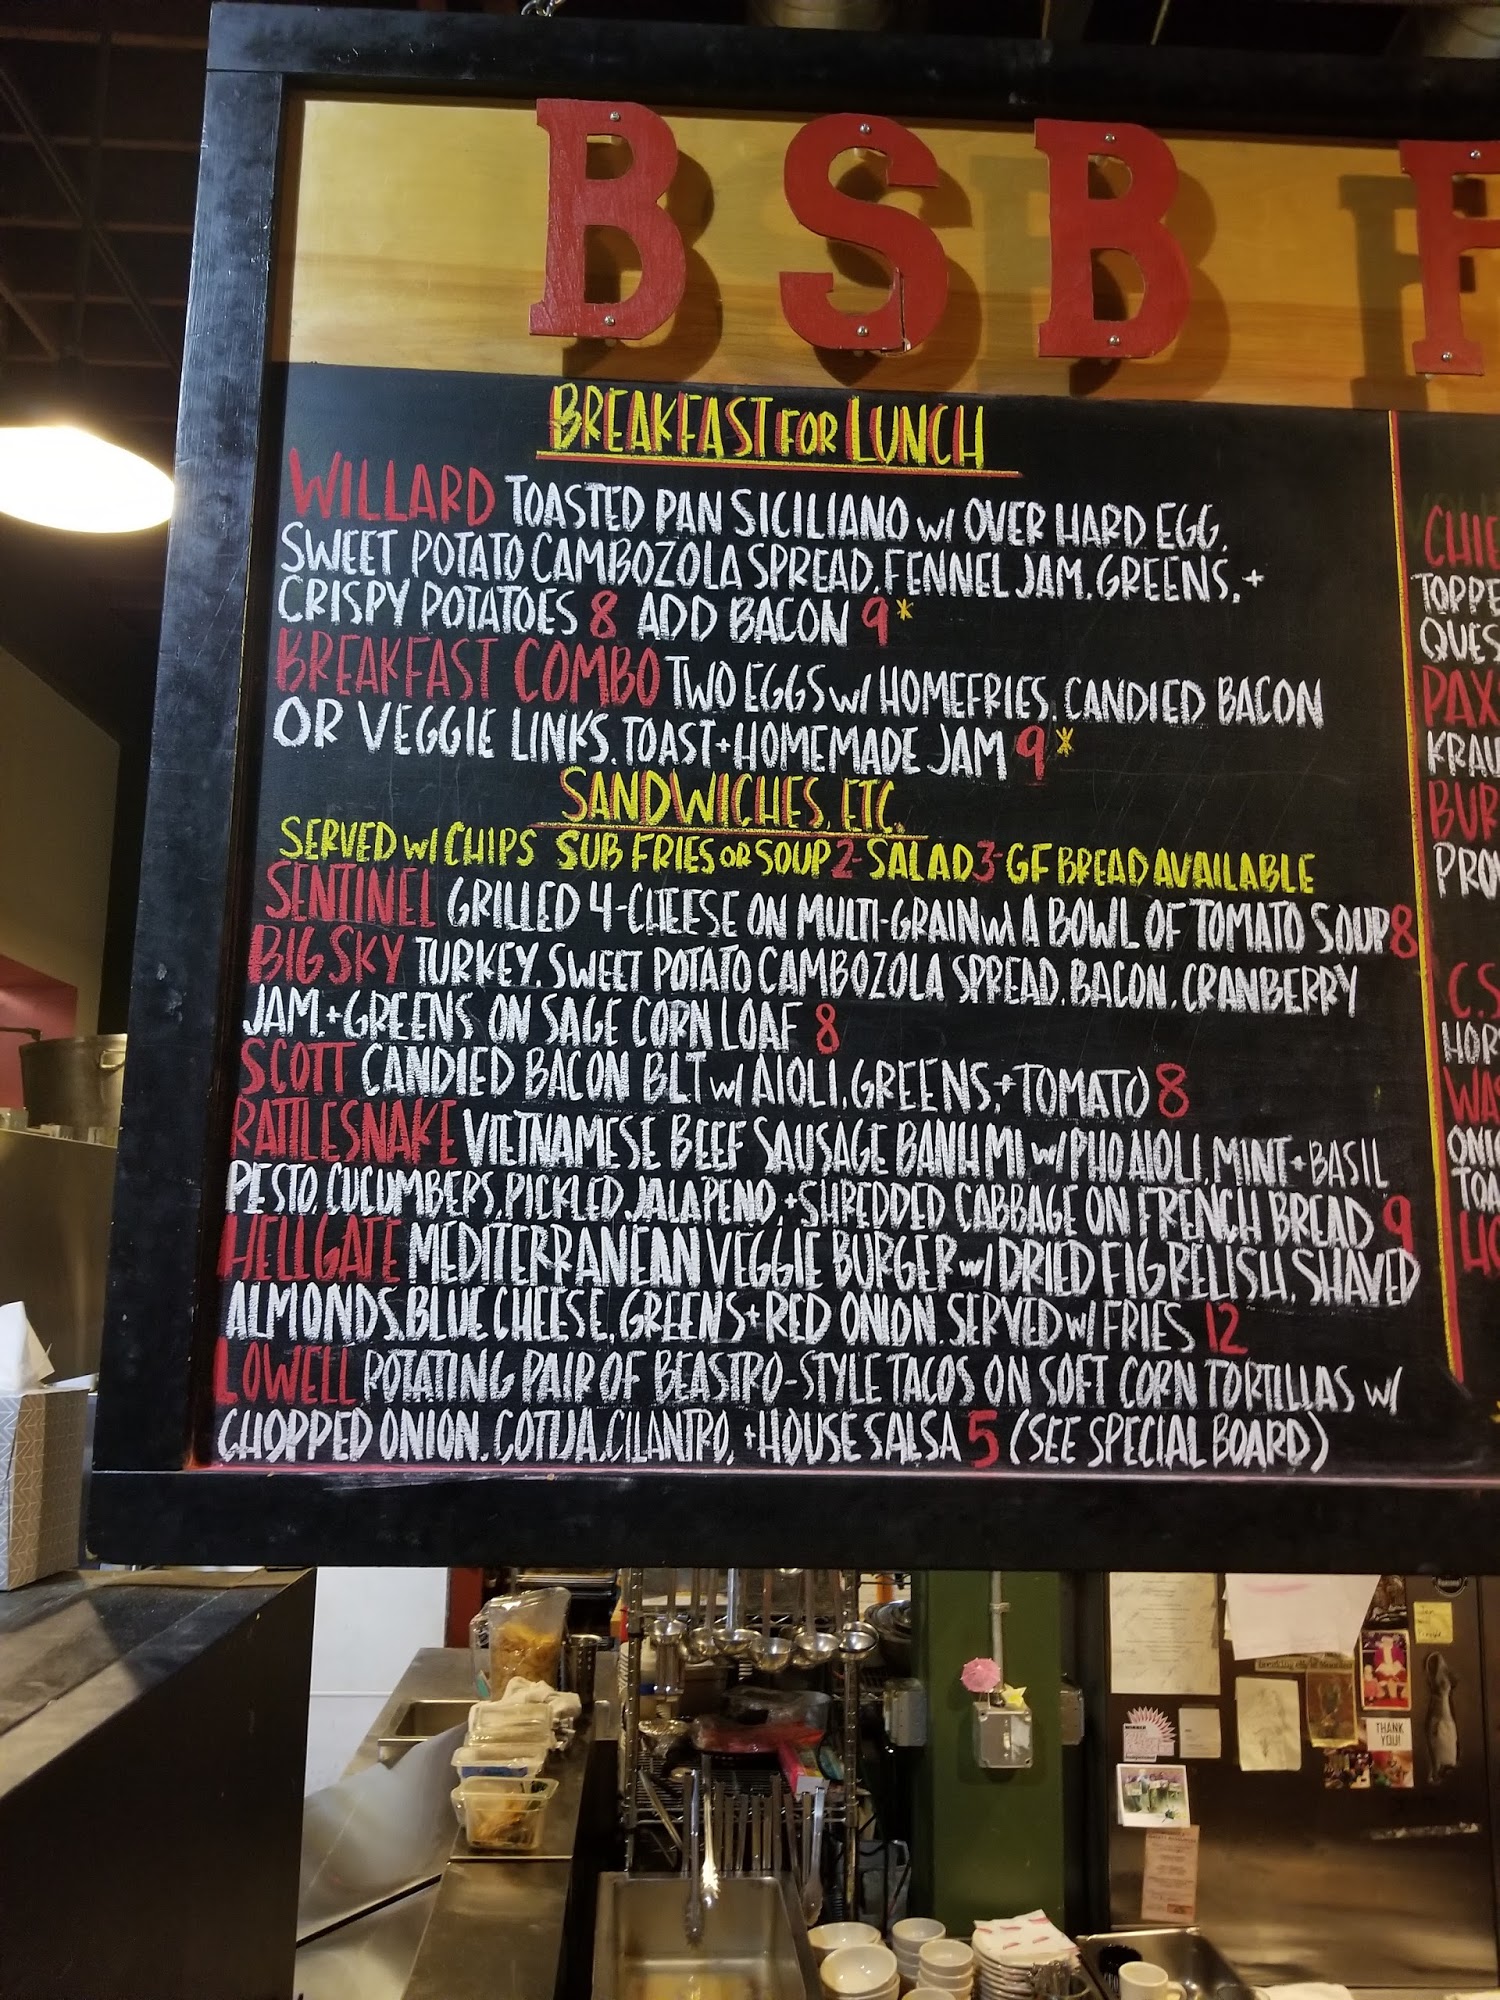 BSB F
BREAKFAST FOR LUNCH
WILLARD TOASTED PAN SICILIANO w/ OVER HARD EGG,
SWEET POTATO CAMBOZOLA SPREAD, FENNEL JAM, GREENS, +
CRISPY POTATOES 8 ADD BACON 9*
BREAKFAST COMBO TWO EGGS w/ HOMEFRIES, CANDIED BACON
OR VEGGIE LINKS, TOAST + HOMEMADE JAM 9*
SANDWICHES, ETC.
SERVED w/ CHIPS SUB FRIES OR SOUP 2- SALAD 3- GF BREAD AVAILABLE
SENTINEL GRILLED 4-CHEESE ON MULTI-GRAIN w/ A BOWL OF TOMATO SOUP 8
BIG SKY TURKEY, SWEET POTATO CAMBOZOLA SPREAD, BACON, CRANBERRY
JAM, + GREENS ON SAGE CORN LOAF 8
SCOTT CANDIED BACON BLT w/ AIOLI, GREENS, + TOMATO 8
RATTLESNAKE VIETNAMESE BEEF SAUSAGE BANH MI w/ PHO AIOLI, MINT + BASIL
PESTO, CUCUMBERS, PICKLED JALAPENO, + SHREDDED CABBAGE ON FRENCH BREAD 9
HELLGATE MEDITERRANEAN VEGGIE BURGER w/ DRIED FIG RELISH, SHAVED
ALMONDS, BLUE CHEESE, GREENS + RED ONION. SERVED w/ FRIES 12
LOWELL ROTATING PAIR OF BEASTRO-STYLE TACOS ON SOFT CORN TORTILLAS w/
CHOPPED ONION, COTIJA, CILANTRO, + HOUSE SALSA 5 (SEE SPECIAL BOARD)
CHIE
TOPPE
QUES
PAX
KRAU
BUR
PROV
C.S
HOR
WAS
ONIO
TOA
HO
THANK
YOU!